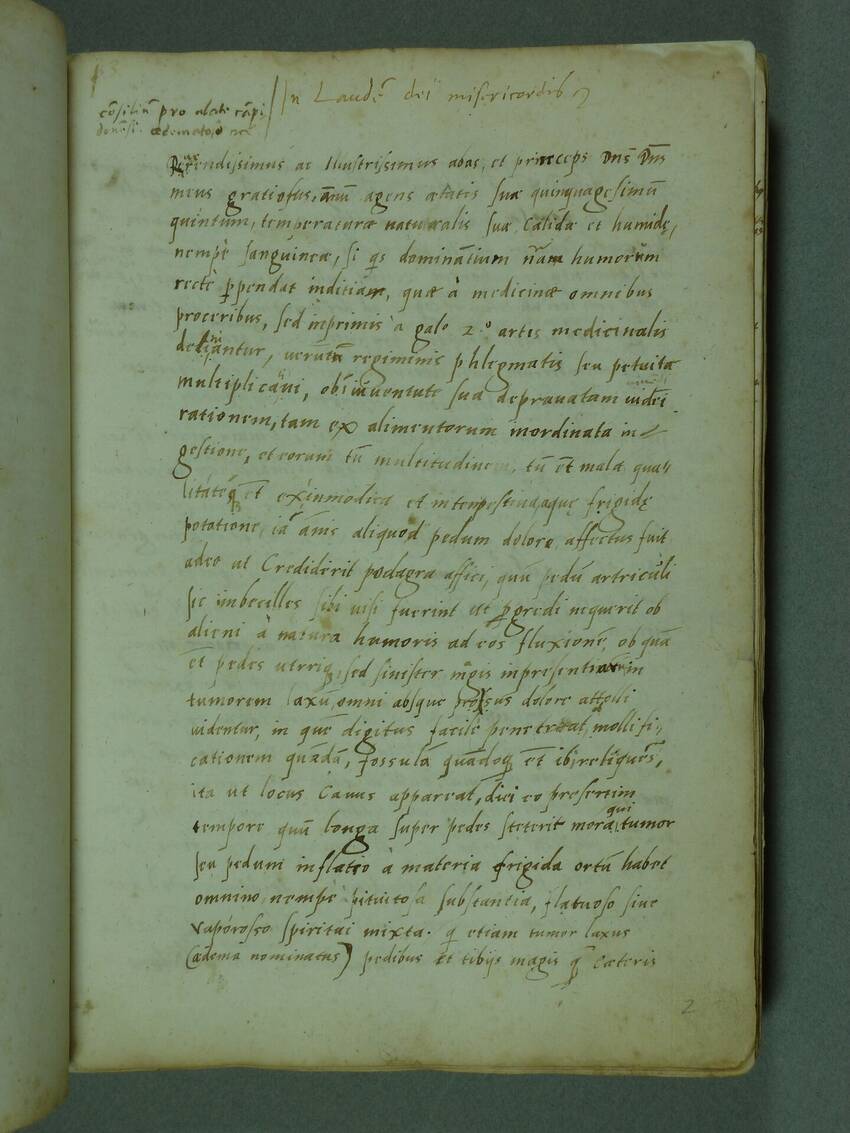 In Laudē dei misericordis
cōsiliū pro abate cāpi
donēsi œdematoso
Reverendissimus ac Illustrissimus abas, et princeps Dn̄s Dn̄s
meus gratiosus, annū agens ætatis suæ quinquagesimū
quintum, temperaturæ naturalis suæ Calidæ et humidę,
nempè sanguineæ, si qs dominātium humorum
rectè ꝑpendat inditiam, quæ à medicinæ omnibus
proceribus, sed inprimis à gale 2.º artis medicinalis
regiminis phlegmatis seu petuitæ
sua depravatam videt
rationem, tam ex alimentorum inordinata in-
gestione, et eorum tū multitudine, tū ēt mala qua-
litate ēt ex inmodica et intempestiva aquę frigidę
potatione, iā anīs aliquod pedum dolore affectus fuit
adeo ut Crediderit podagra affici, quū pedū artriculi
sic imbecilles sibi visi fuerint ut ꝑgredi nequerit ob
alieni à natura humoris ad eos fluxionē, ob quā
ēt pedes uterq, sed sinister mgis inpresentiarum in
tumorem laxū, omni absque prorsus dolore attolli
videntur, in quē digitus facile penetrat, mollifi-
cationem quādā, fossulā quādoq ēt ibi reliquēs,
ita ut locus Cavus appareat, diei eo presertim
tempore quū longa super pedes steterit mora, qui tumor
seu pedum inflatio à materia frigida ortū habet
omnino nempè pituitosa substantia, flatuoso sive
vaporosso spiritui mixta. q etiam tumor laxus
(œdema nominatus) pedibus et tibijs magis q̄ Cæteris
2